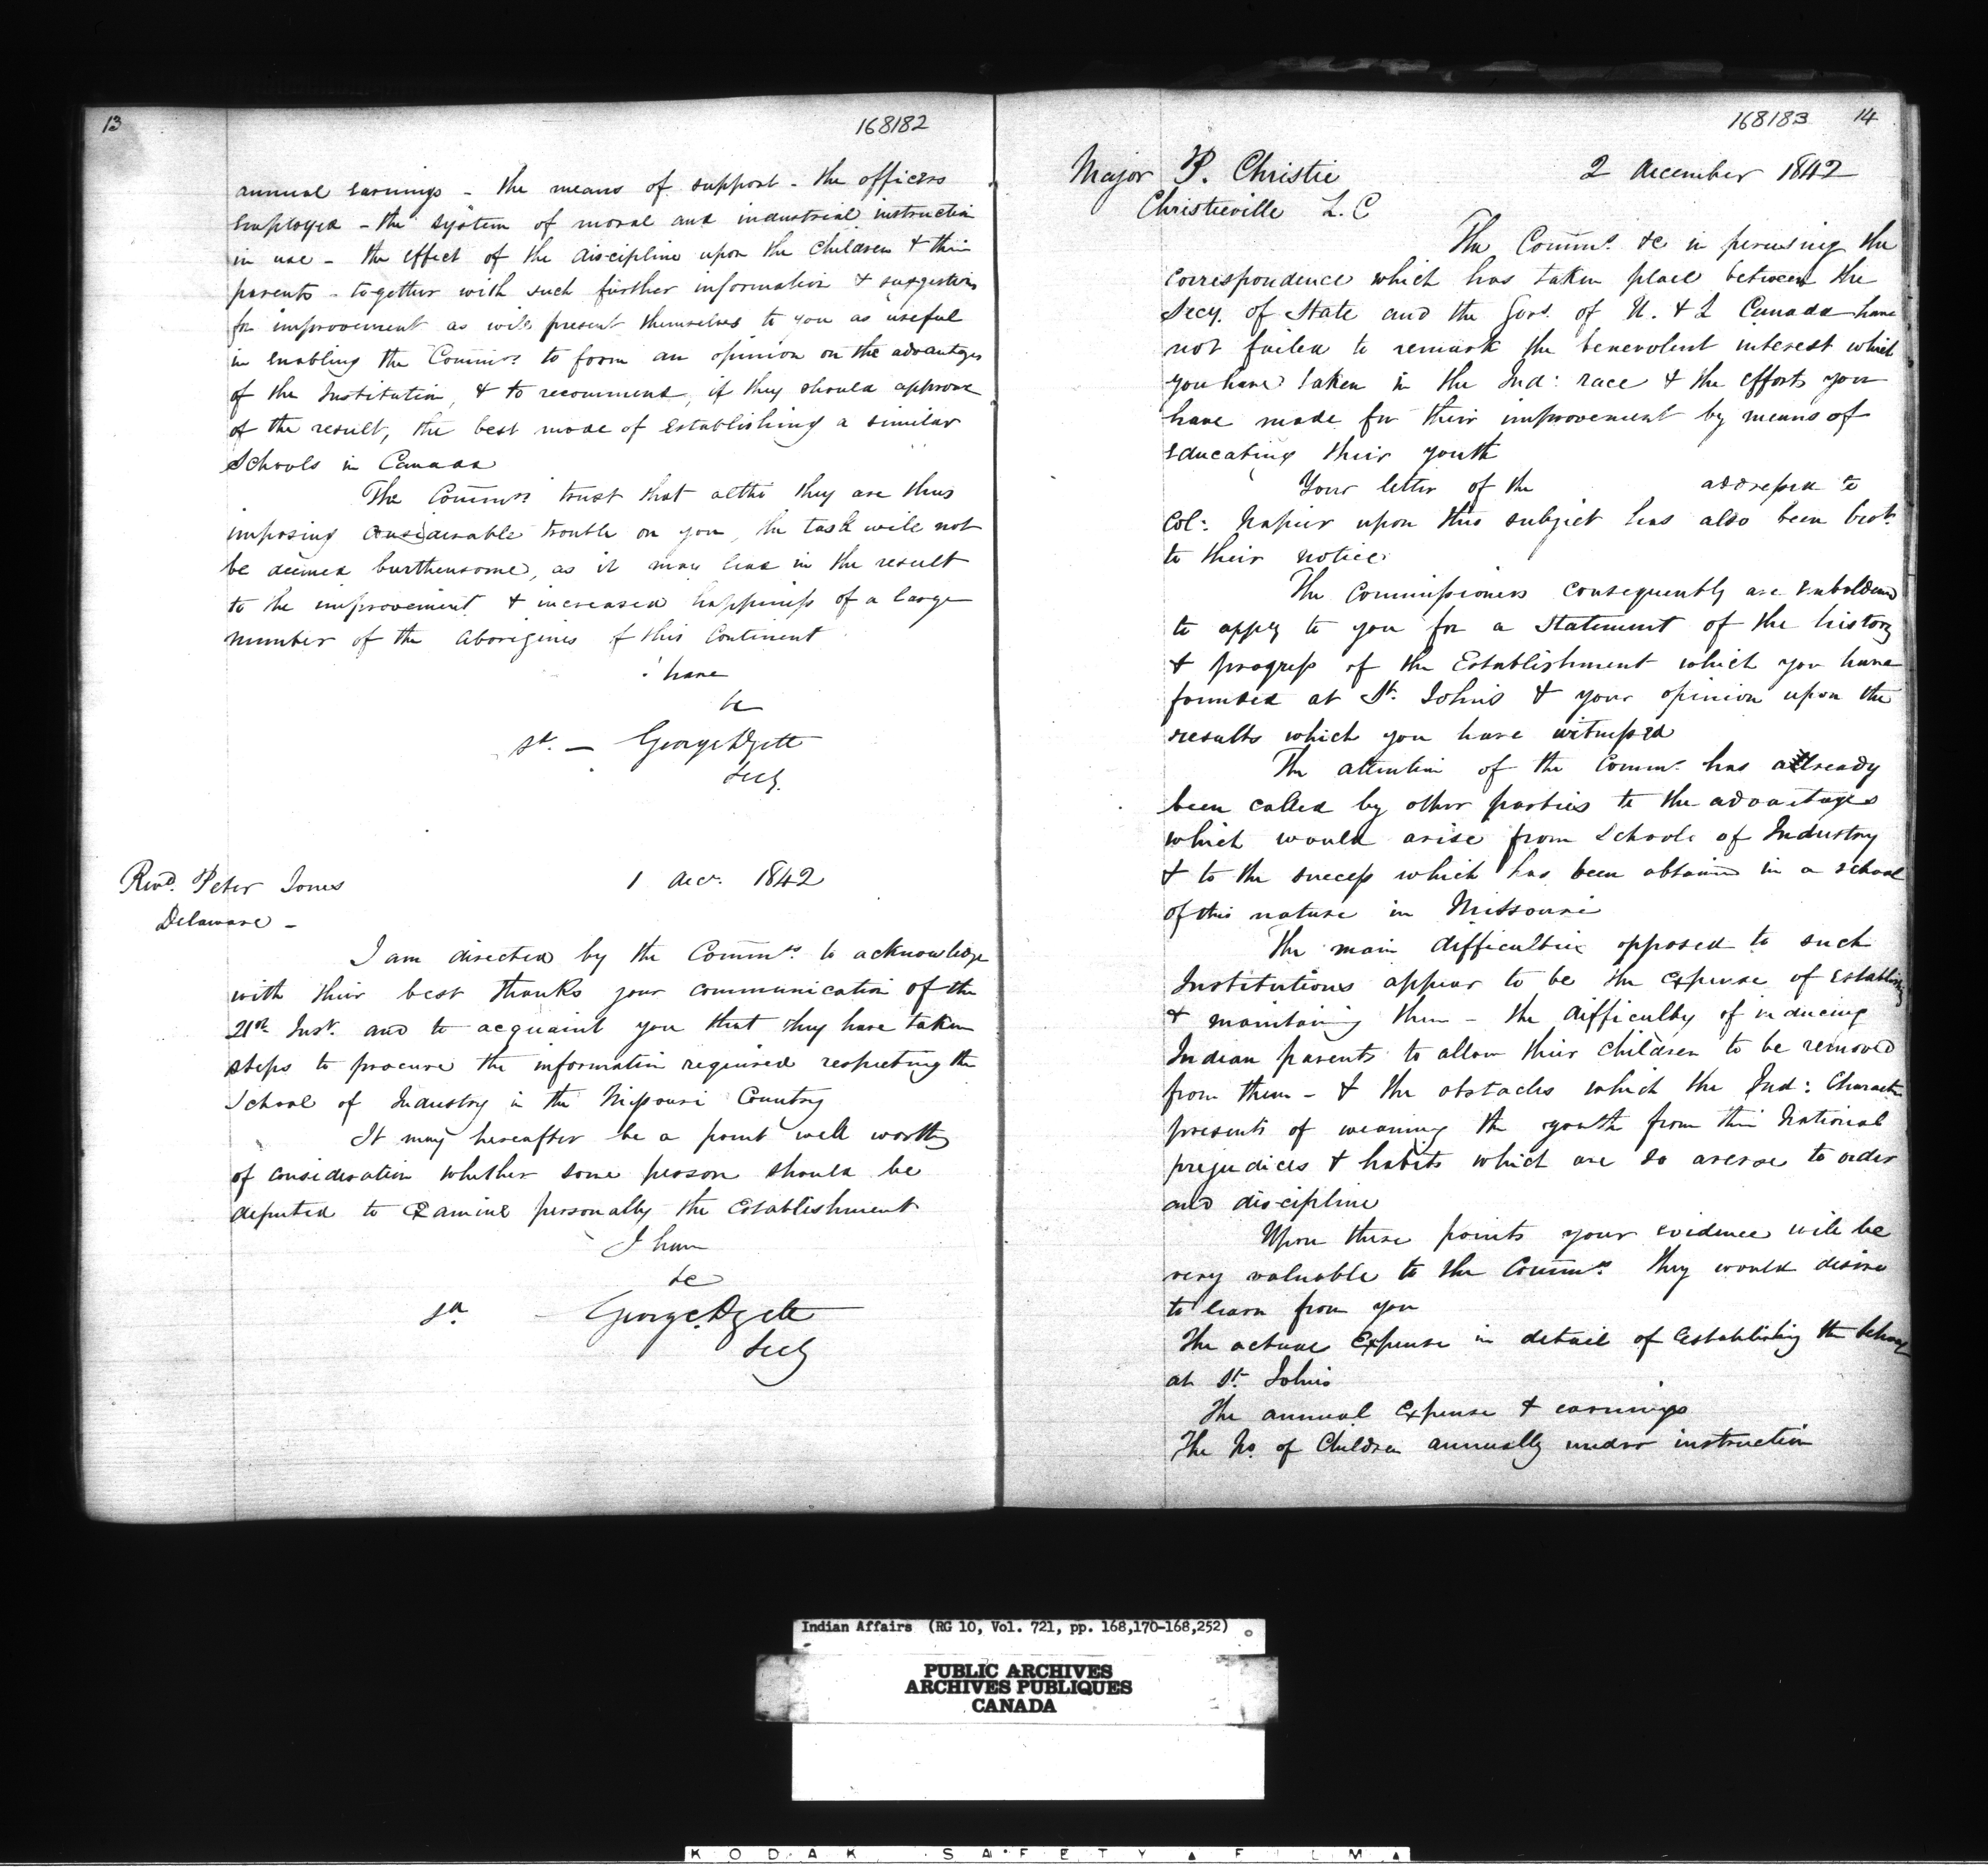 13
168182
annual earnings - the means of support - the officers
employed - the system of moral and industrial instruction
in use - the effect of the discipline upon the children & their
parents - together with such further information & suggestions
for improvement as will present themselves to you as useful
in enabling the Commrs. to form an opinion on the advantages
of the Institution, & to recommend, if they should approve
of the result, the best mode of establishing a similar
Schools in Canada
The Commrs. trust that altho' they are thus
imposing considerable trouble on you, the task will not
be deemed burthensome, as it may lead in the result
to the improvement & increased happiness of a large
number of the Aborigines of this Continent
I have
&c
Sd. - George Dyett
Secy.
Revd. Peter Jones
1 Decr. 1842
Delaware -
I am directed by the Commrs. to acknowledge
with their best thanks your communication of the
21st Inst. and to acquaint you that they have taken
steps to procure the information required respecting the
School of Industry in the Missouri Country
It may hereafter be a point well worthy
of consideration whether some person should be
deputed to examine personally the Establishment
I have
&c
Sd. - George Dyett
Secy
168183 14
Major P. Christie
2 December 1842
Christieville L.C
The Commrs. &c in perusing the
correspondence which has taken place between the
Secy. of State and the Govt. of U. & L Canada have
not failed to remark the benevolent interest which
you have taken in the Ind: race & the efforts you
have made for their improvement by means of
educating their youth
Your letter of the addressed to
Col: Napier upon this subject has also been brot.
to their notice.
The Commissioners consequently are emboldened
to apply to you for a statement of the history
& progress of the Establishment which you have
founded at St. Johns & your opinion upon the
results which you have witnessed
The attention of the Commrs. has already
been called by other parties to the advantages
which would arise from Schools of Industry
& to the success which has been obtained in a school
of this nature in Missouri
The main difficulties opposed to such
Institutions appear to be the expense of establishing
& maintaining them - the difficulty of inducing
Indian parents to allow their children to be removed
from them - & the obstacles which the Ind: Character
presents of weaning the youth from their National
prejudices & habits which are so averse to order
and discipline
Upon these points your evidence will be
very valuable to the Commrs. They would desire
to learn from you
The actual expense in detail of establishing the School
at St. Johns
The annual Expense & earnings
The No. of Children annually under instruction
Indian Affairs (RG 10, Vol. 721, pp. 168,170-168,252)
PUBLIC ARCHIVES
ARCHIVES PUBLIQUES
CANADA
KODAK SAFETY FILM